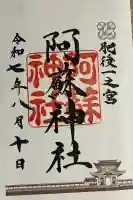 肥後一之宮
阿蘇神社
阿蘇
神社
令和七年八月十日